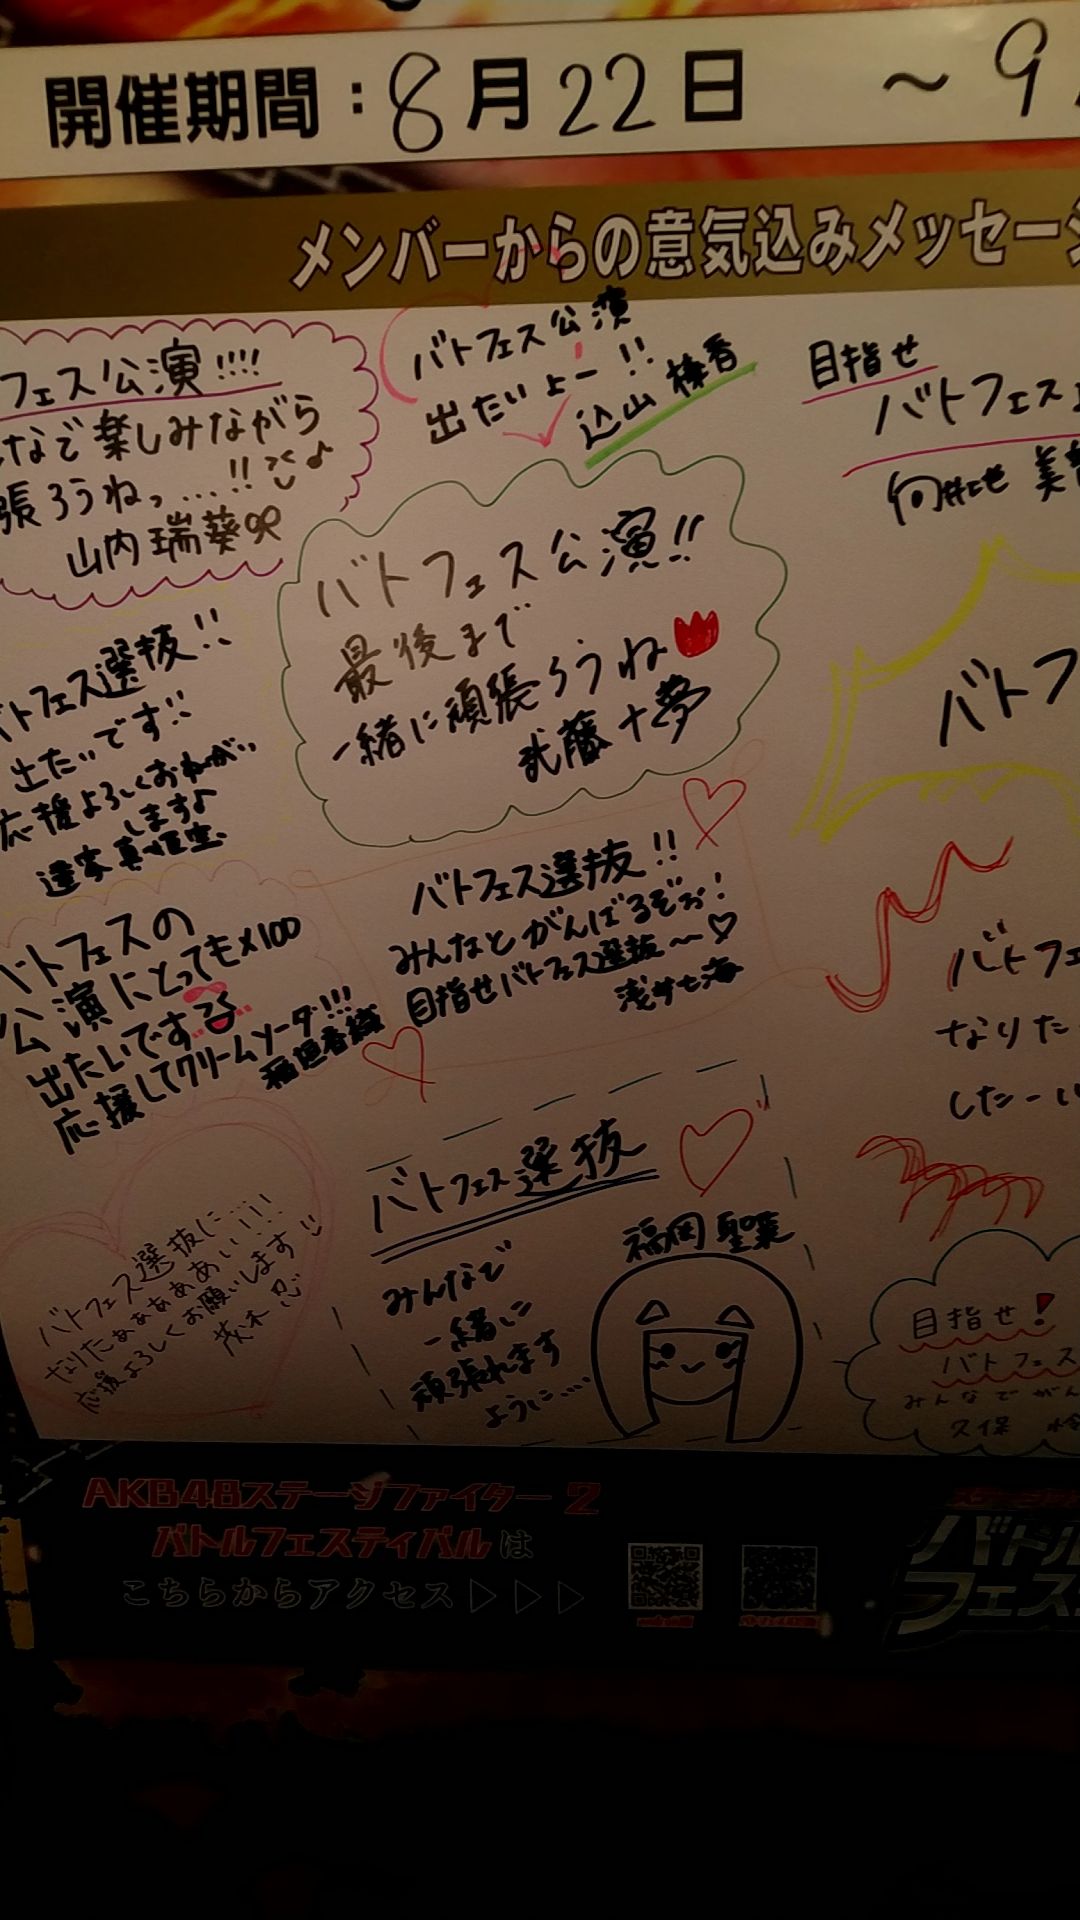 開催期間：8月22日 ～9
メンバーからの意気込みメッセージ
フェス公演!!!!
なで楽しみながら
張ろうねっ...!!
山内瑞葵
バトフェス公演
出たいよー!!
込山榛香
目指せ
バトフェス
向井地 美
バトフェス公演!!
最後まで
一緒に頑張ろうね
武藤十夢
バトフェス選抜!!
出たいです!!
応援よろしくおねがい
します♪
達家真姫宝
バトフ
バトフェス選抜!!
みんなとがんばるぞぉ!
目指せバトフェス選抜〜♡
浅井七海
バトフェスの
公演にとっても×100
出たいです
応援してクリームソーダ!!!
稲垣香織
バトフェ
なりた
したーい
バトフェス選抜
福岡聖菜
みんなで
一緒に
頑張れます
ように....
バトフェス選抜に....
なりたぁぁぁぁあい!!!
応援よろしくお願いします
茂木忍
目指せ!
バトフェス
みんなでがん
久保 怜
AKB48ステージファイター2
バトルフェスティバルは
こちらからアクセス▷▷▷
バトル
フェス